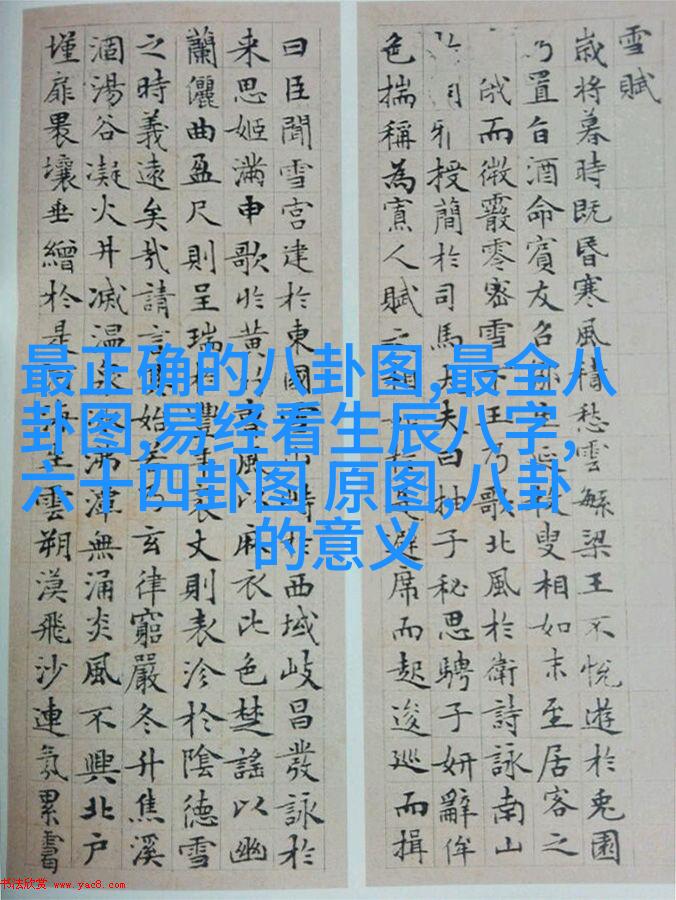 雪賦
歲將暮時既昏寒風積愁雲繁梁王不悅遊於兎園
乃置旨酒命賓友召生延枚叟相如末至居客之
俄而微霰零密雪下王乃歌北風於衛詩詠南山
雅授簡於司馬大夫曰抽子秘思騁子妍辭侔
色揣稱為寡人賦之相於是避席而起逡巡而揖
曰臣聞雪宮建於東國雪山峙於西域岐昌發詠於
来思姬滿申歌於黃竹曹風以麻衣比色楚謠以幽
蘭儷曲盈尺則呈瑞於豐年袤丈則表沴於陰德雪
之時義遠矣哉請言其始若乃玄律窮嚴冬升焦溪
涸湯谷凝火井滅温泉冰沸潭無涌炎風不興北户
墐扉壤垂繒於是河海生雲朔漠飛沙連氛累靄
最正确的八卦图,最全八
卦图,易经看生辰八字,
六十四卦图 原图,八卦
的意义
书法欣赏 www.yac8.com